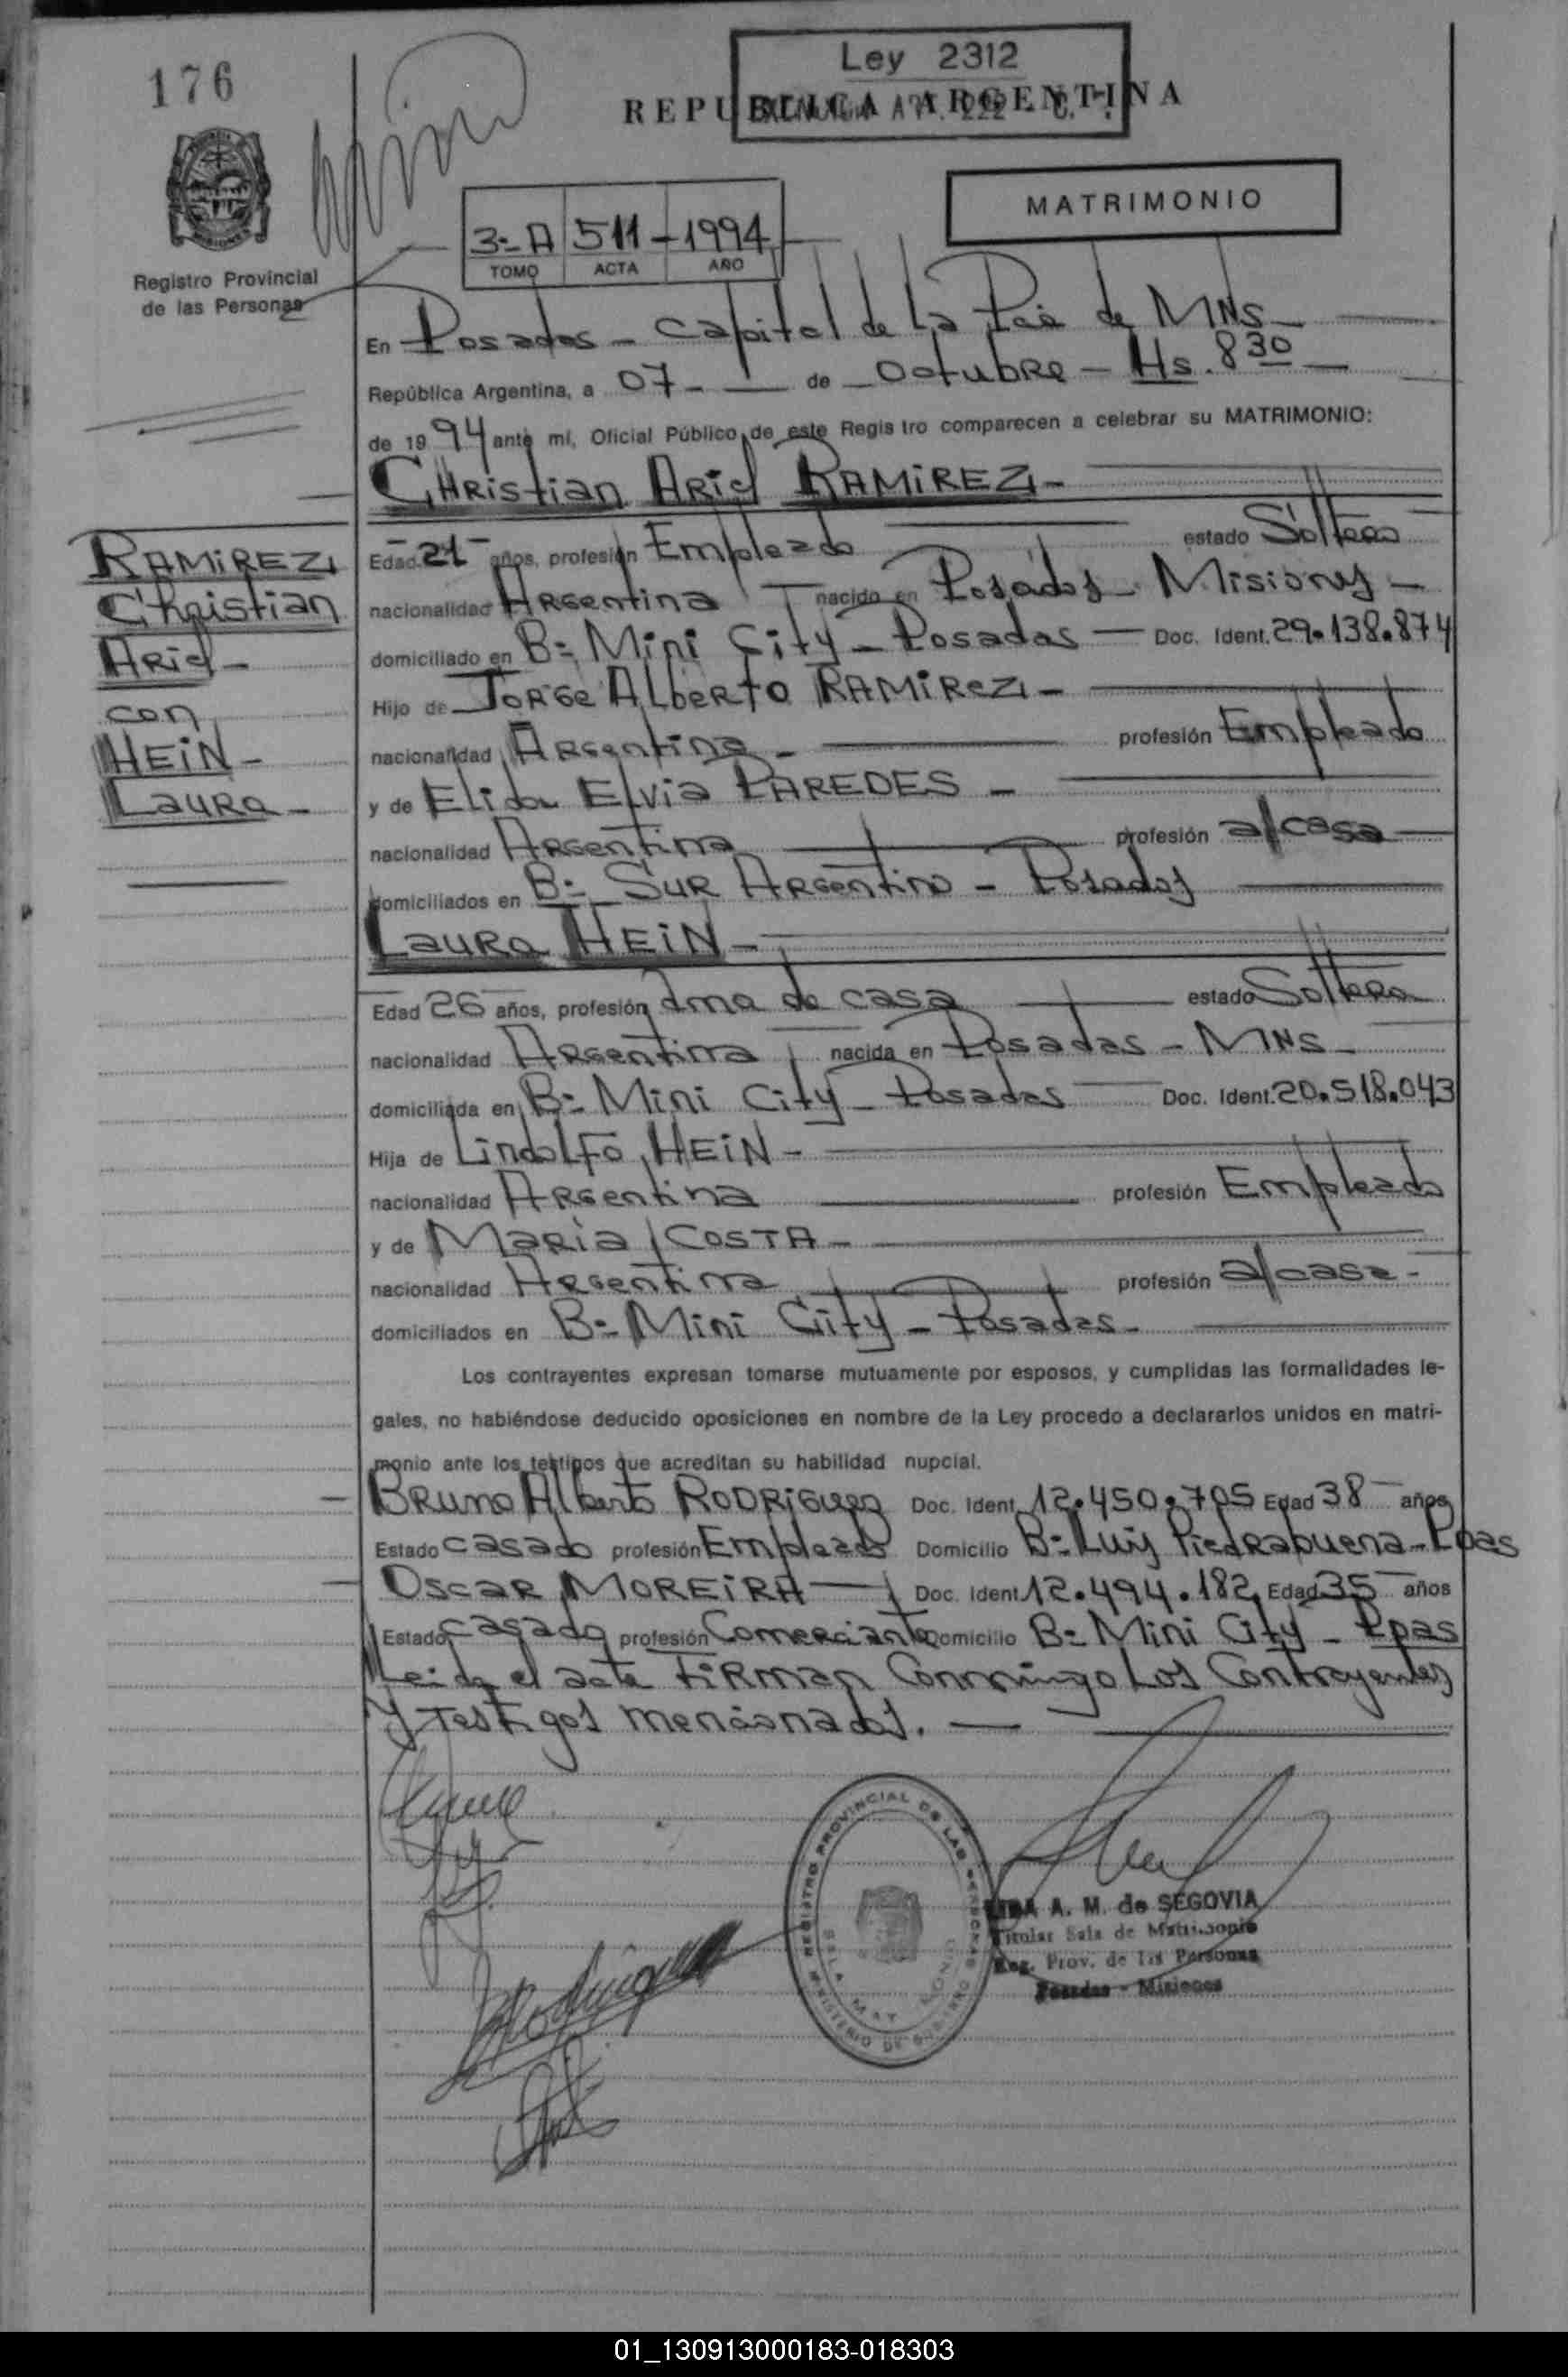 176
Ley 2312
REPUBLICA ARGENTINA
MATRIMONIO
3=A 511-1994
TOMO ACTA AÑO
Registro Provincial
de las Personas
En Posadas - Capital de La Pcia de MNS -
República Argentina, a 07 - de Octubre - Hs. 8 30 -
de 1994 ante mí, Oficial Público de este Registro comparecen a celebrar su MATRIMONIO:
Christian Ariel RAMIREZ -
RAMIREZ
Christian
Ariel -
con
HEIN -
Laura -
Edad 21 años, profesión Empleado estado Soltero
nacionalidad Argentina nacido en Posadas - Misiones -
domiciliado en B= Mini City - Posadas - Doc. Ident. 29.138.874
Hijo de Jorge Alberto RAMIREZ -
nacionalidad Argentina - profesión Empleado
y de Elida Elvia PAREDES -
nacionalidad Argentina profesión a/casa
domiciliados en B= Sur Argentino - Posadas
Laura HEIN -
Edad 26 años, profesión ama de casa estado Soltera
nacionalidad Argentina nacida en Posadas - MNS -
domiciliada en B= Mini City - Posadas Doc. Ident. 20.518.043
Hija de Lindolfo HEIN -
nacionalidad Argentina profesión Empleado
y de Maria COSTA -
nacionalidad Argentina profesión a/casa -
domiciliados en B= Mini City - Posadas -
Los contrayentes expresan tomarse mutuamente por esposos, y cumplidas las formalidades le-
gales, no habiéndose deducido oposiciones en nombre de la Ley procedo a declararlos unidos en matri-
monio ante los testigos que acreditan su habilidad nupcial.
Bruno Alberto RODRIGUEZ Doc. Ident. 12.450.705 Edad 38 años
Estado casado profesión Empleado Domicilio B= Luis Piedrabuena - Pdas
Oscar MOREIRA - Doc. Ident. 12.494.182 Edad 35 años
Estado casado profesión Comerciante Domicilio B= Mini City - Pdas
Leida el acta Firman Conmingo Los Contrayentes
y Testigos mencionados. -
REGISTRO PROVINCIAL DE LAS PERSONAS
MINISTERIO DE GOBIERNO
A. M. de SEGOVIA
Titular Sala de Matrimonio
Reg. Prov. de las Personas
Posadas - Misiones
01_130913000183-018303